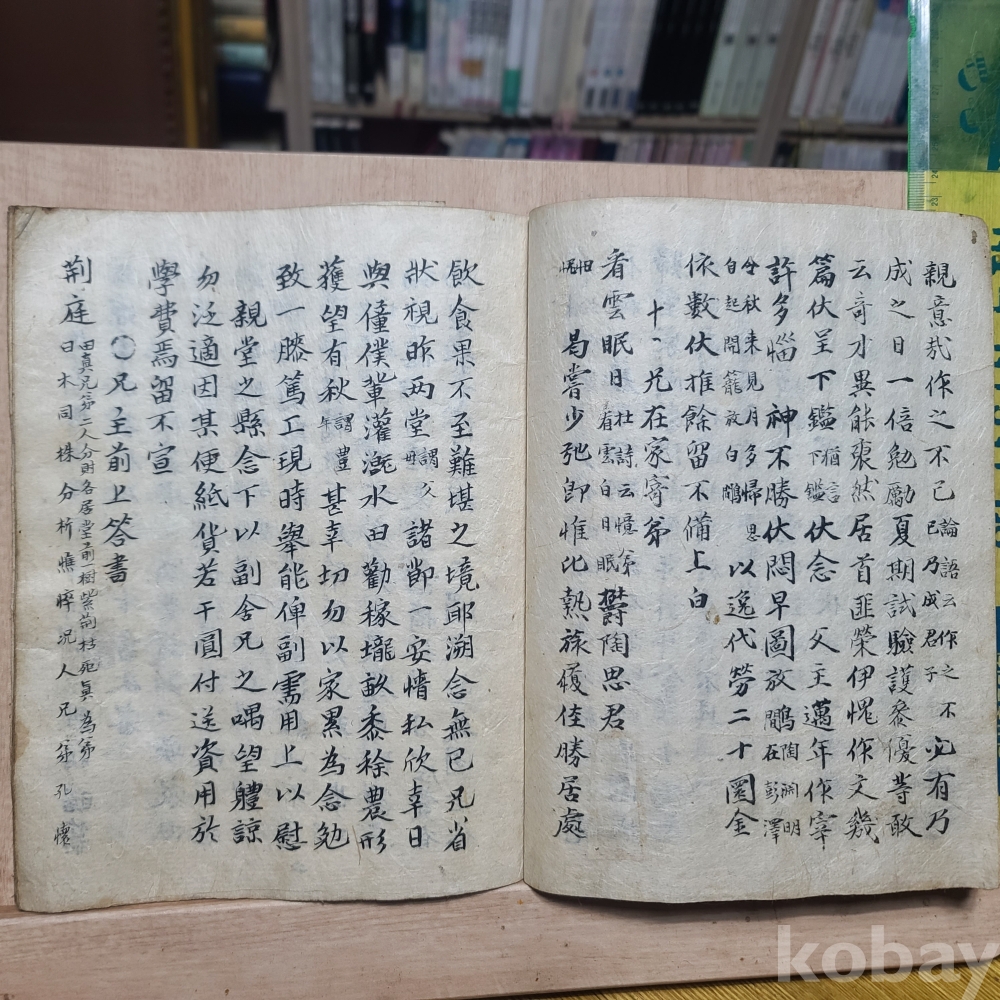 親意哉作之不已論語云作之不已乃成君子必有乃
成之日一倍勉勵夏期試驗護叅優等敢
云奇才異能褎然居首匪榮伊愧作文幾
篇伏呈下鑑猶言下鑑伏念父主邁年作宰
許多惱神不勝伏悶早圖放鷴陶淵明在彭澤
今秋来見月多歸思自起開籠放白鷴以逸代勞二十圜金
依數伏推餘留不備上白
十一兄在家寄弟
看雲眠日杜詩云憶弟看雲白日眠鬱陶思君
忸怩曷嘗少弛卽惟比熱旅履佳勝居處
飮食果不至難堪之境耶溯念無已兄省
狀視昨两堂謂父母諸節一安憣私欣幸日
與僮僕軰灌漑水田勸稼壠畝黍稌農形
獲望有秋謂豊年甚幸切勿以家累為念勉
致一膝篤工現時舉能俾副需用上以慰
親堂之縣念下以副舍兄之喁望軆諒
勿泛適因某便紙貨若干圓付送資用於
學費焉留不宣
〇兄主前上答書
荆庭田真兄弟二人分財各居堂前一樹紫荊枯死眞為弟曰木同株分析憔瘁况人兄弟孔懷
kobay